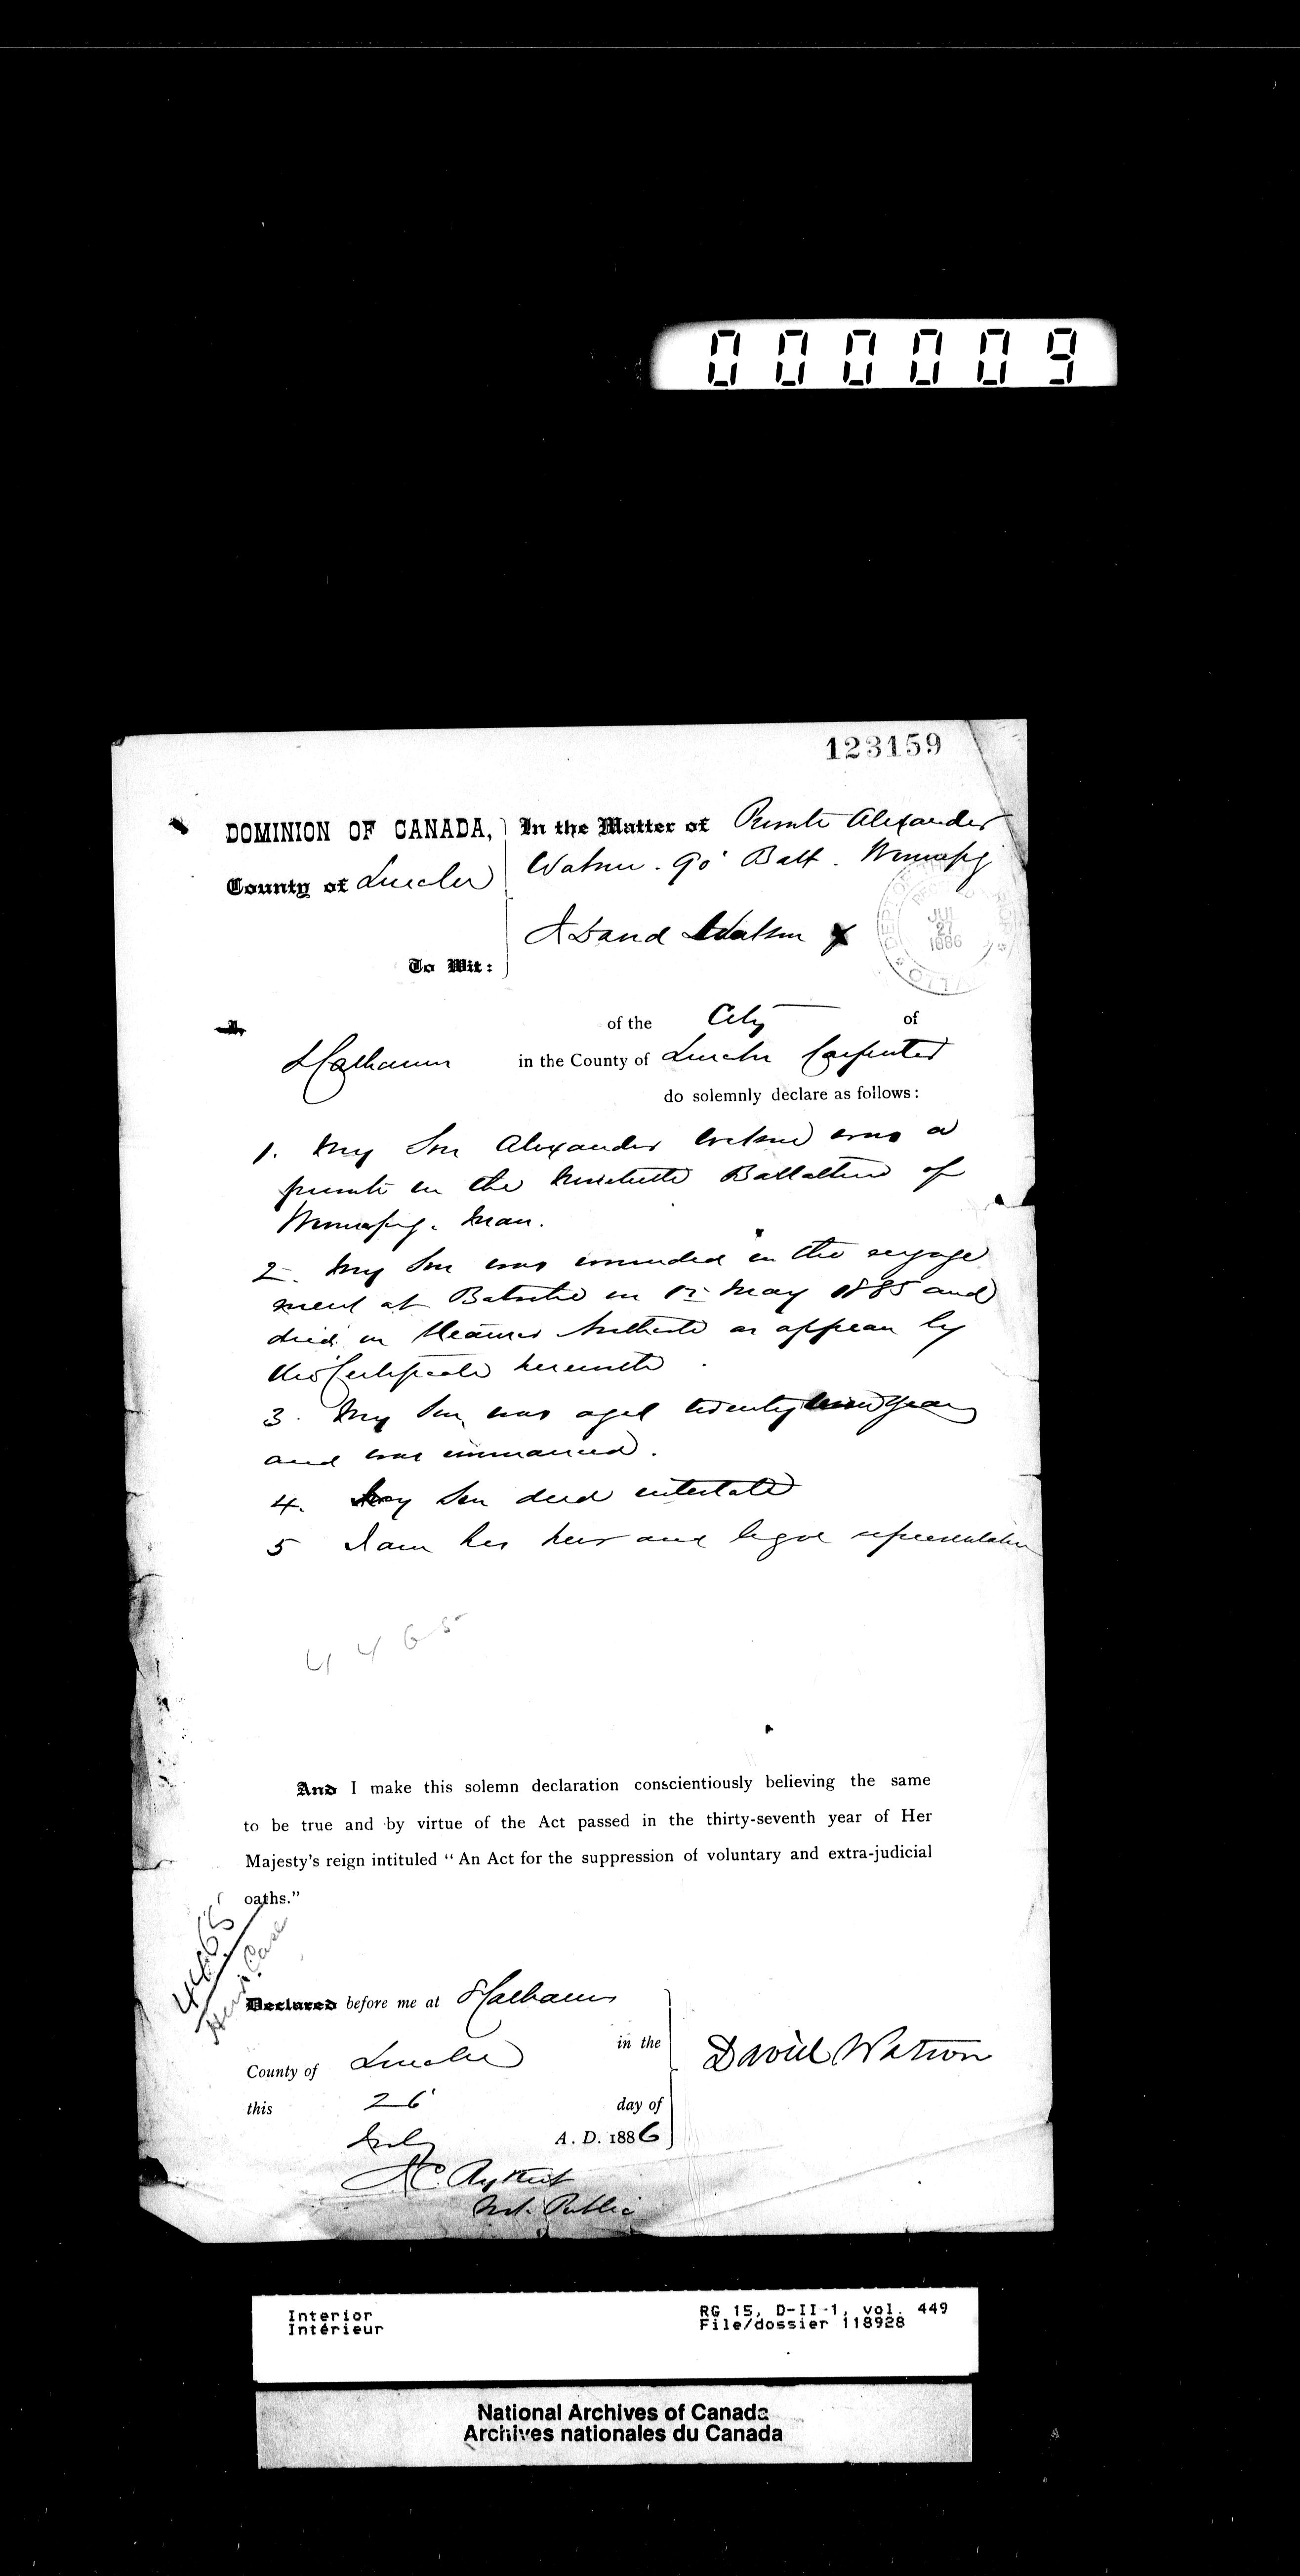 000009
123159
DOMINION OF CANADA, In the Matter of Private Alexander
County of Lincoln Watson. 90' Batt. Winnipeg
JUL
27
1886
I David Watson
To Wit:
of the City of
St Catharines in the County of Lincoln Carpenter
do solemnly declare as follows:
1. My Son Alexander Watson was a
private in the Battalion of
Winnipeg. Man.
2. My Son was wounded in the engage
ment at Batoche on 12 May 1885 and
died on Steamer Northcote as appears by
the Certificate herewith
3. My Son was aged twenty years
and was unmarried.
4. My Son died intestate
5 I am his heir and legal representative
4465
And I make this solemn declaration conscientiously believing the same
to be true and by virtue of the Act passed in the thirty-seventh year of Her
Majesty's reign intituled "An Act for the suppression of voluntary and extra-judicial
oaths."
4465
Heirs Case
Declared before me at St Catharines
in the
County of Lincoln
David Watson
this 26' day of
July A. D. 1886
J C Rykert
Not. Public
Interior RG 15, D-II-1, vol. 449
Intérieur File/dossier 118928
National Archives of Canada
Archives nationales du Canada